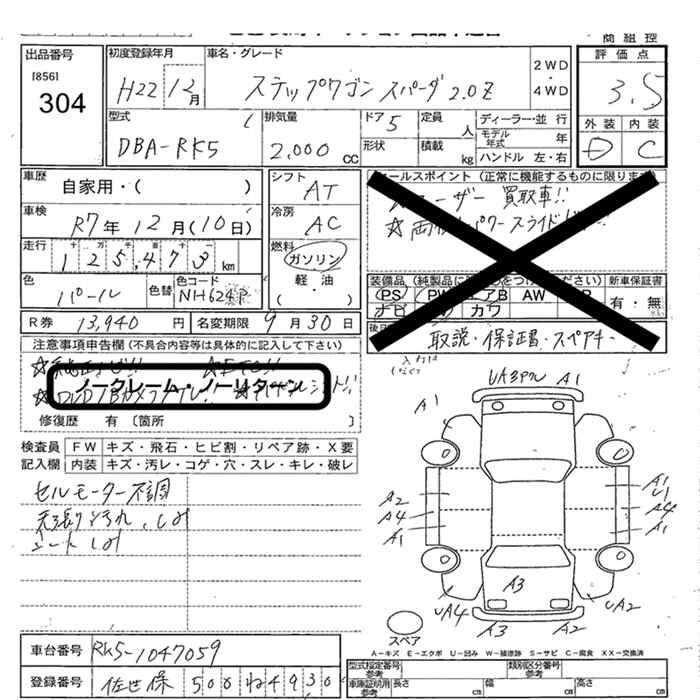 商組控
出品番号
[856]
304
初度登録年月
H22 12月
車名・グレード
ステップワゴン スパーダ 2.0Z
2WD
・
4WD
評価点
3.5
外装 内装
D C
型式
DBA-RK5
排気量
2,000 cc
ドア 5
形状
定員 人
積載 kg
ディーラー・並行
モデル年式 年
ハンドル 左・右
車歴 自家用・( )
シフト AT
セールスポイント (正常に機能するものに限ります)
ユーザー買取車!!
車検 R7年 12月(10日)
冷房 AC
走行 125,473 km
燃料 ガソリン
軽・油
( )
色 パール
色替
色コード NH624P
装備品
新車保証書
PS PW エアB AW
ナビ カワ
有・無
R券 13,940 円
名変期限 9月30日
取説・保証書・スペアキー
注意事項申告欄 (不具合内容等は具体的に記入して下さい)
ノークレーム・ノーリターン
修復歴 有 〔箇所 〕
検査員記入欄
FW キズ・飛石・ヒビ割・リペア跡・X要
内装 キズ・汚レ・コゲ・穴・スレ・キレ・破レ
セルモーター不調
天張り汚れ、しみ
シートしみ
A1
A1
A2
A4
A1
A1
U1
A4
A1
A3
UA4
UA2
A3
A2
スペア
A-キズ E-エクボ U-凹み W-補修跡 S-サビ C-腐食 XX-交換済
車台番号 RK5-1047059
登録番号 佐世保 500 ね 4930
型式指定番号 参考
類別区分番号 参考
車庫証明用 参考
長さ cm
幅 cm
高さ cm